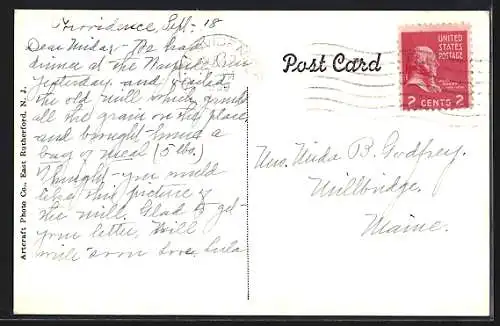 Providence, Sept. 18
Dear Nida, - We had
dinner at the Wayside Inn
yesterday and visited
the old mill which grinds
all the grain on the place
and brought home a
bag of meal (5 lbs.)
Thought you would
like this picture of
the mill. Glad to get
your letter. Will
write soon Love, Lula
Post Card
UNITED
STATES
POSTAGE
2 CENTS 2
Mrs. Nida B. Godfrey,
Millbridge,
Maine.
Artcraft Photo Co., East Rutherford, N. J.